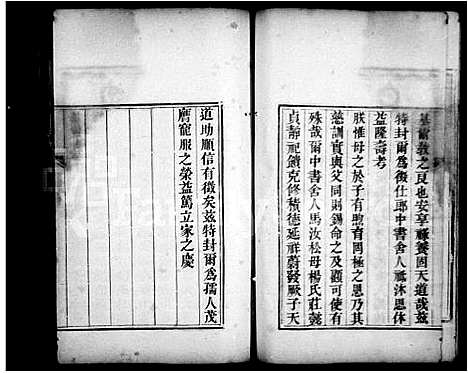 基爾教之良也安享祿養固天道哉茲
特封爾為徵仕郎中書舍人祗沐恩休
益隆壽考
朕惟母之於子有煦育罔極之恩乃其
慈訓實與父同則錫命之及顧可使有
殊哉爾中書舍人馬汝松母楊氏莊懿
貞靜祀饋克修積德延祥蔚發厥子天
道助順信有徵矣茲特封爾為孺人茂
膺寵服之榮益篤立家之慶